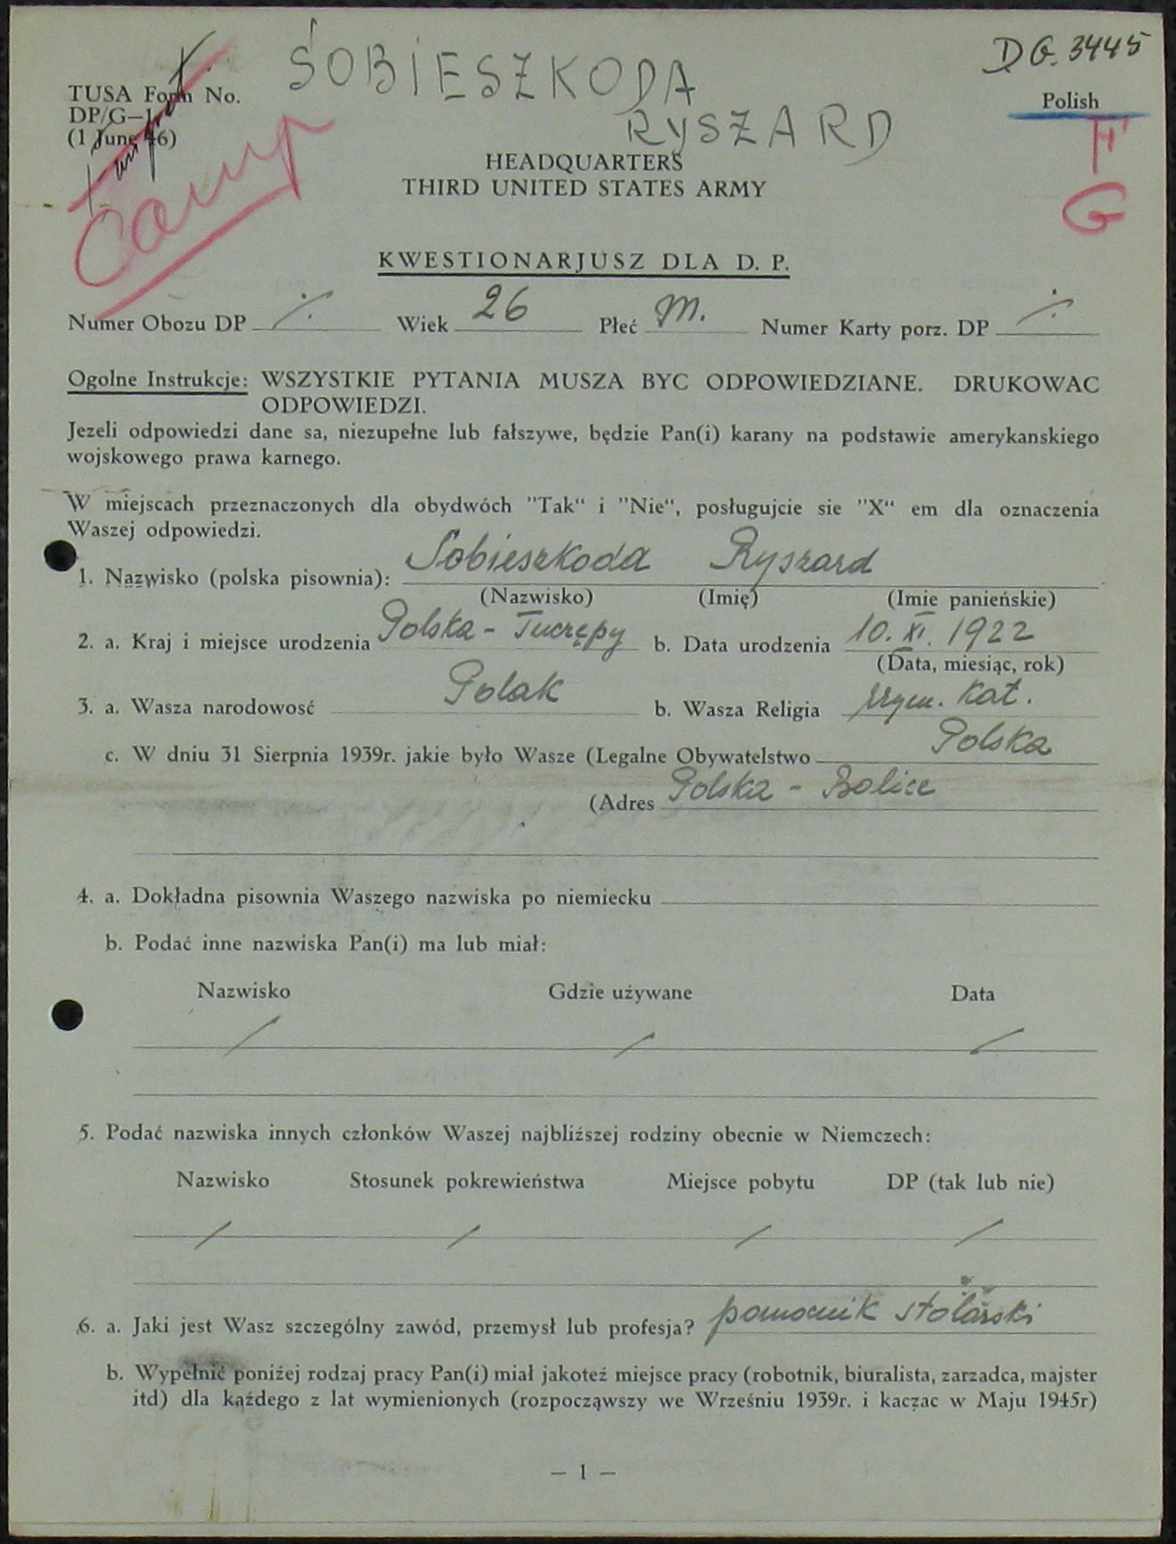 SOBIESZKODA
RYSZARD
D.G. 3445
TUSA Form No.
DP/G—1
(1 June 46)
Camp
Polish
F
G
HEADQUARTERS
THIRD UNITED STATES ARMY
KWESTIONARJUSZ DLA D. P.
Numer Obozu DP ·/. Wiek 26 Płeć m. Numer Karty porz. DP ·/.
Ogolne Instrukcje: WSZYSTKIE PYTANIA MUSZA BYC ODPOWIEDZIANE. DRUKOWAC
ODPOWIEDZI.
Jezeli odpowiedzi dane sa, niezupełne lub fałszywe, będzie Pan(i) karany na podstawie amerykanskiego
wojskowego prawa karnego.
W miejscach przeznaczonych dla obydwóch "Tak“ i "Nie“, posługujcie sie "X“ em dla oznaczenia
Waszej odpowiedzi.
1. Nazwisko (polska pisownia): Sobieszkoda Ryszard
(Nazwisko) (Imię) (Imie panieńskie)
2. a. Kraj i miejsce urodzenia Polska - Tuczępy b. Data urodzenia 10. XI. 1922
(Data, miesiąc, rok)
3. a. Wasza narodowosć Polak b. Wasza Religia rzym. kat.
c. W dniu 31 Sierpnia 1939r. jakie było Wasze (Legalne Obywatelstwo Polska
(Adres Polska -
4. a. Dokładna pisownia Waszego nazwiska po niemiecku
b. Podać inne nazwiska Pan(i) ma lub miał:
Nazwisko Gdzie używane Data
/ / /
5. Podać nazwiska innych członków Waszej najbliższej rodziny obecnie w Niemczech:
Nazwisko Stosunek pokrewieństwa Miejsce pobytu DP (tak lub nie)
/ / / /
6. a. Jaki jest Wasz szczególny zawód, przemysł lub profesja? pomocnik stolarski
b. Wypełnić poniżej rodzaj pracy Pan(i) miał jakoteż miejsce pracy (robotnik, biuralista, zarzadca, majster
itd) dla każdego z lat wymienionych (rozpocząwszy we Wrześniu 1939r. i kaczac w Maju 1945r)
— 1 —